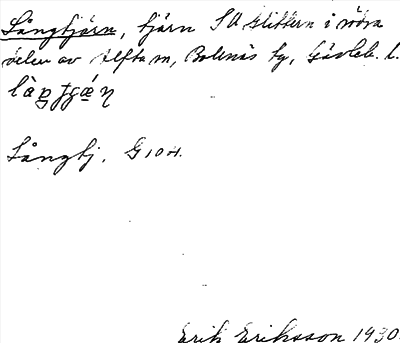 Långtjärn, tjärn SV Glittern i södra
delen av Alfta sn, Bollnäs tg, Gävleb. l.
Långtj. G 104.
Erik Eriksson 1930.